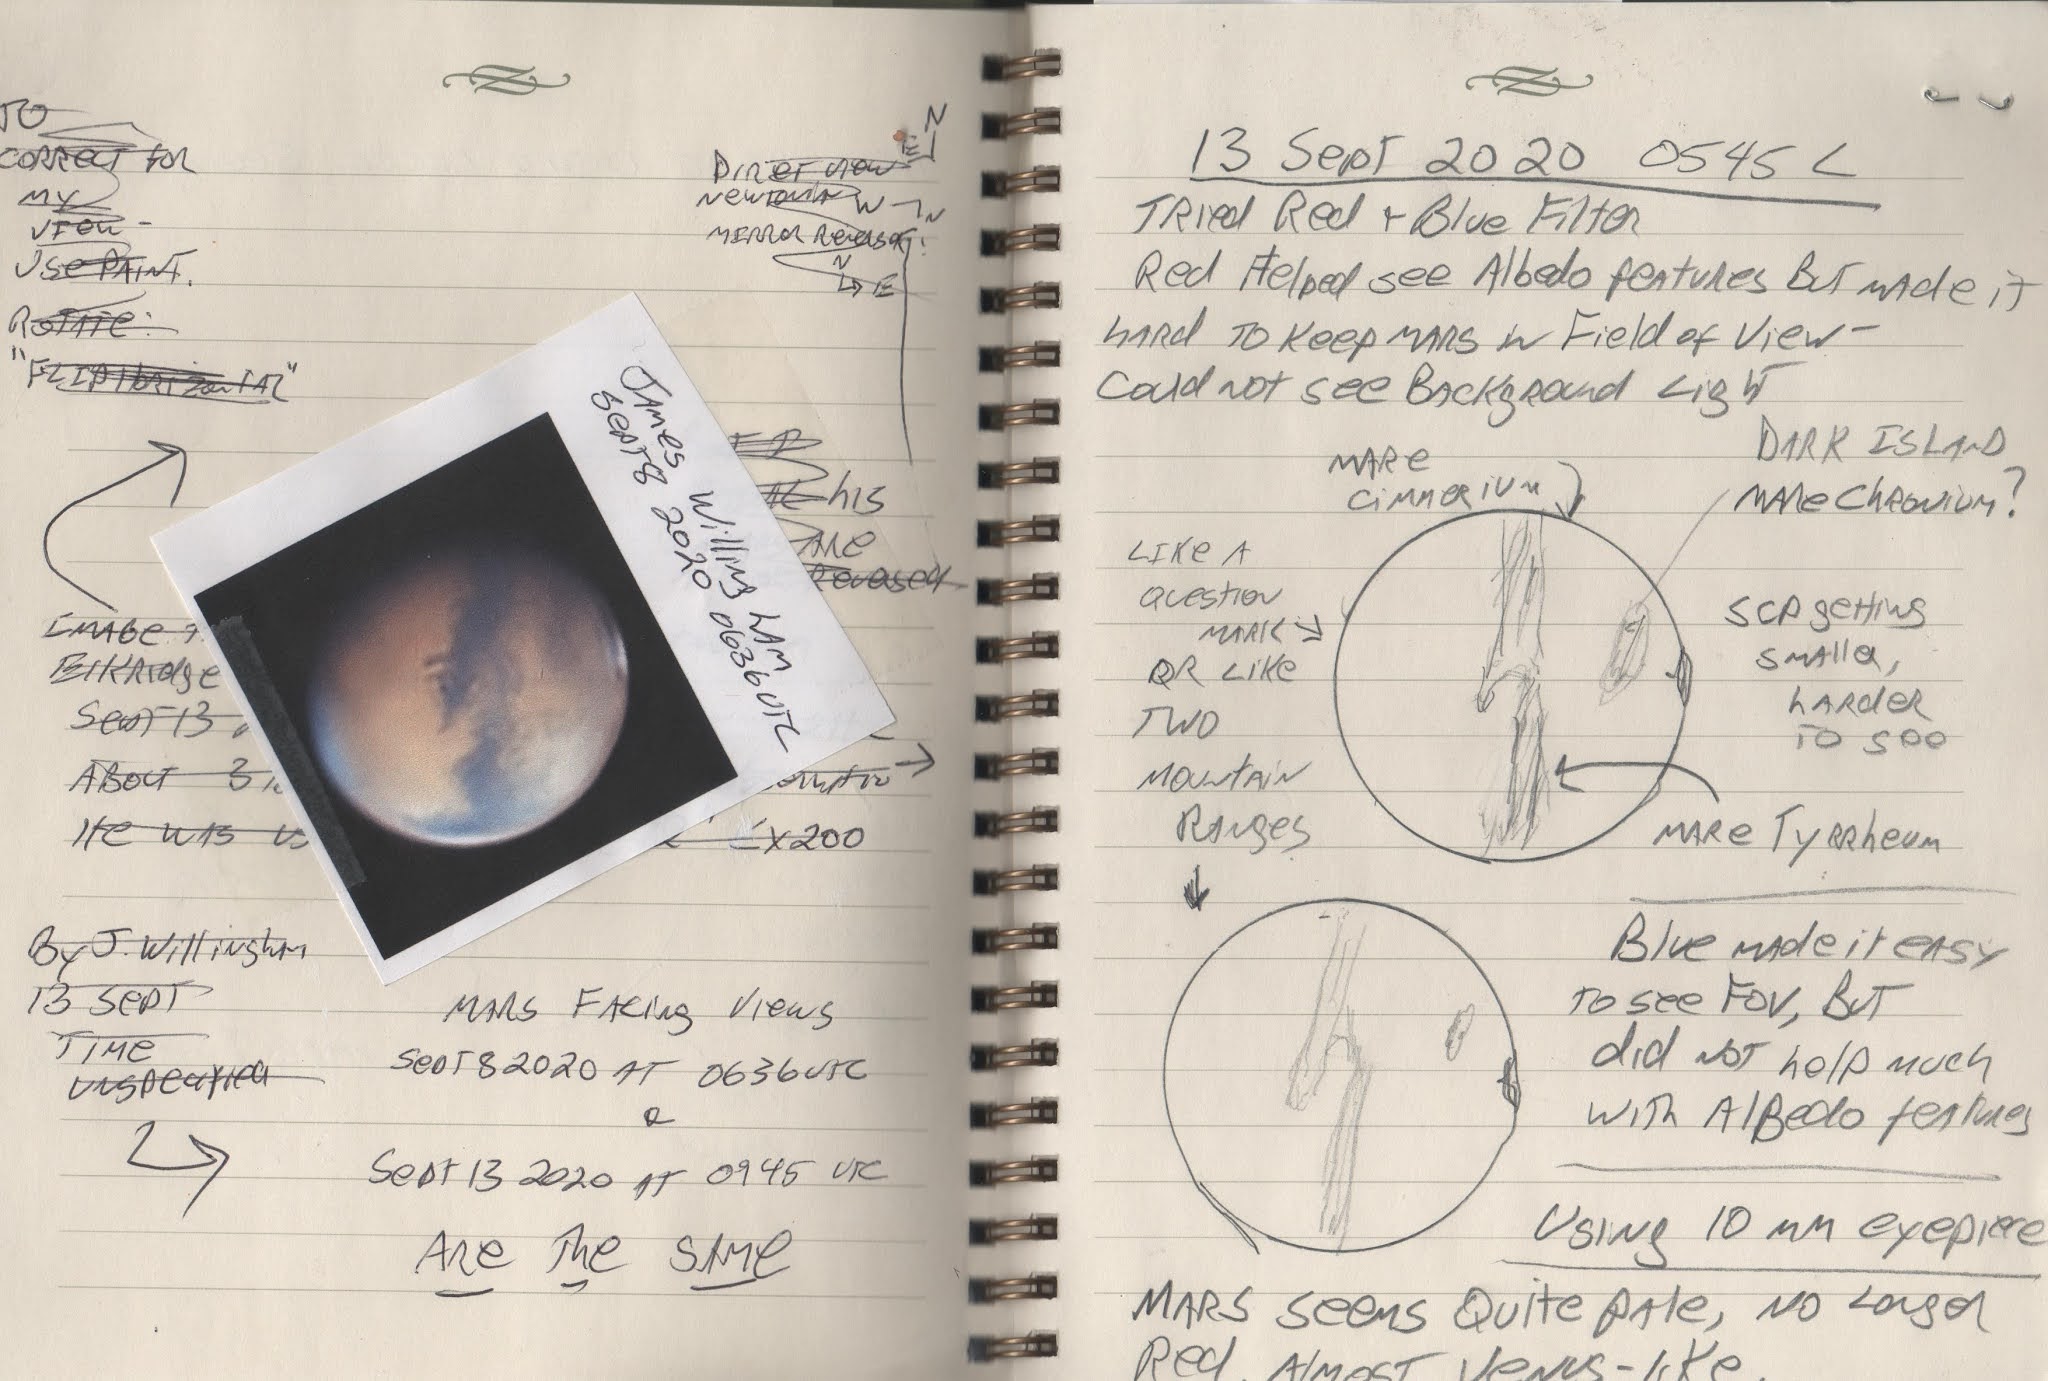 TO
CORRECT FOR
MY
VIEW -
USE PAINT.
ROTATE:
"FLIP Horizontal"
N
E
DIRECT VIEW
NEWTONIAN W N
MIRROR Reversed!
N
E
his
ARE
Reversed
IMAGE
ElkRidge
Sept 13
ABOUT 3
He WAS
x200
By J. Willingham
13 SEPT
TIME
UNSPECIFIED
JAMES WillingHAM
SEPT 8 2020 0636 UTC
MARS FACING VIEWS
SEPT 8 2020 AT 0636 UTC
&
Sept 13 2020 AT 0945 UTC
ARE The SAME
13 Sept 2020 0545 L
TRied Red + Blue Filter
Red Helped see Albedo features BUT MADE iT
hARD TO KEEP MARS IN Field of View-
Could not see BACKground LighT
MARE
CIMMERIUM
DARK ISLAND
MARE ChRONIUM?
LIKE A
QUESTION
MARK
OR LIKE
TWO
MOUNTAIN
RANGES
SCP getting
SMAller,
hARDER
TO see
MARE TyRRheum
Blue made it eASY
TO see FOV, BUT
did NOT help much
WITh AlBedo feATURES
USING 10 MM eyepiece
MARS SEEMS Quite pAle, NO LONger
Red. AlMOST VeNUS-liKe.